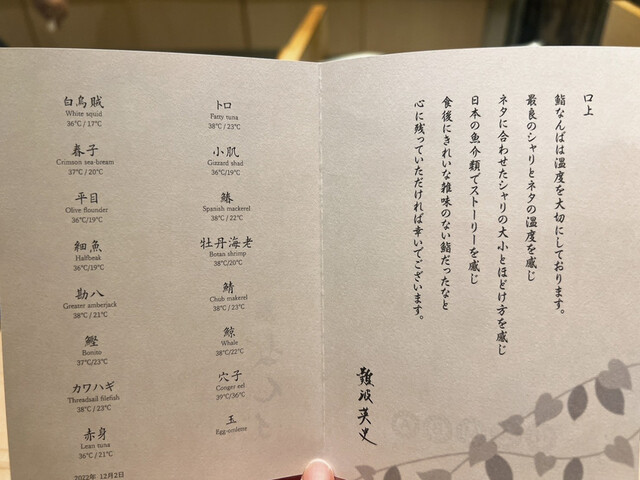 白烏賊
White squid
36℃ / 17℃
春子
Crimson sea-bream
37℃ / 20℃
平目
Olive flounder
36℃/19℃
細魚
Halfbeak
36℃/19℃
勘八
Greater amberjack
38℃ / 21℃
鰹
Bonito
37℃/23℃
カワハギ
Threadsail filefish
38℃ / 23℃
赤身
Lean tuna
36℃ / 21℃
2022年 12月2日
トロ
Fatty tuna
38℃ / 23℃
小肌
Gizzard shad
36℃/19℃
鰆
Spanish mackerel
38℃ / 22℃
牡丹海老
Botan shrimp
38℃/20℃
鯖
Chub makerel
38℃ / 23℃
鯨
Whale
38℃/22℃
穴子
Conger eel
39℃/36℃
玉
Egg-omlette
口上
鮨なんばは温度を大切にしております。
最良のシャリとネタの温度を感じ
ネタに合わせたシャリの大小とほどけ方を感じ
日本の魚介類でストーリーを感じ
食後にきれいな雑味のない鮨だったなと
心に残っていただければ幸いでございます。
難波英史